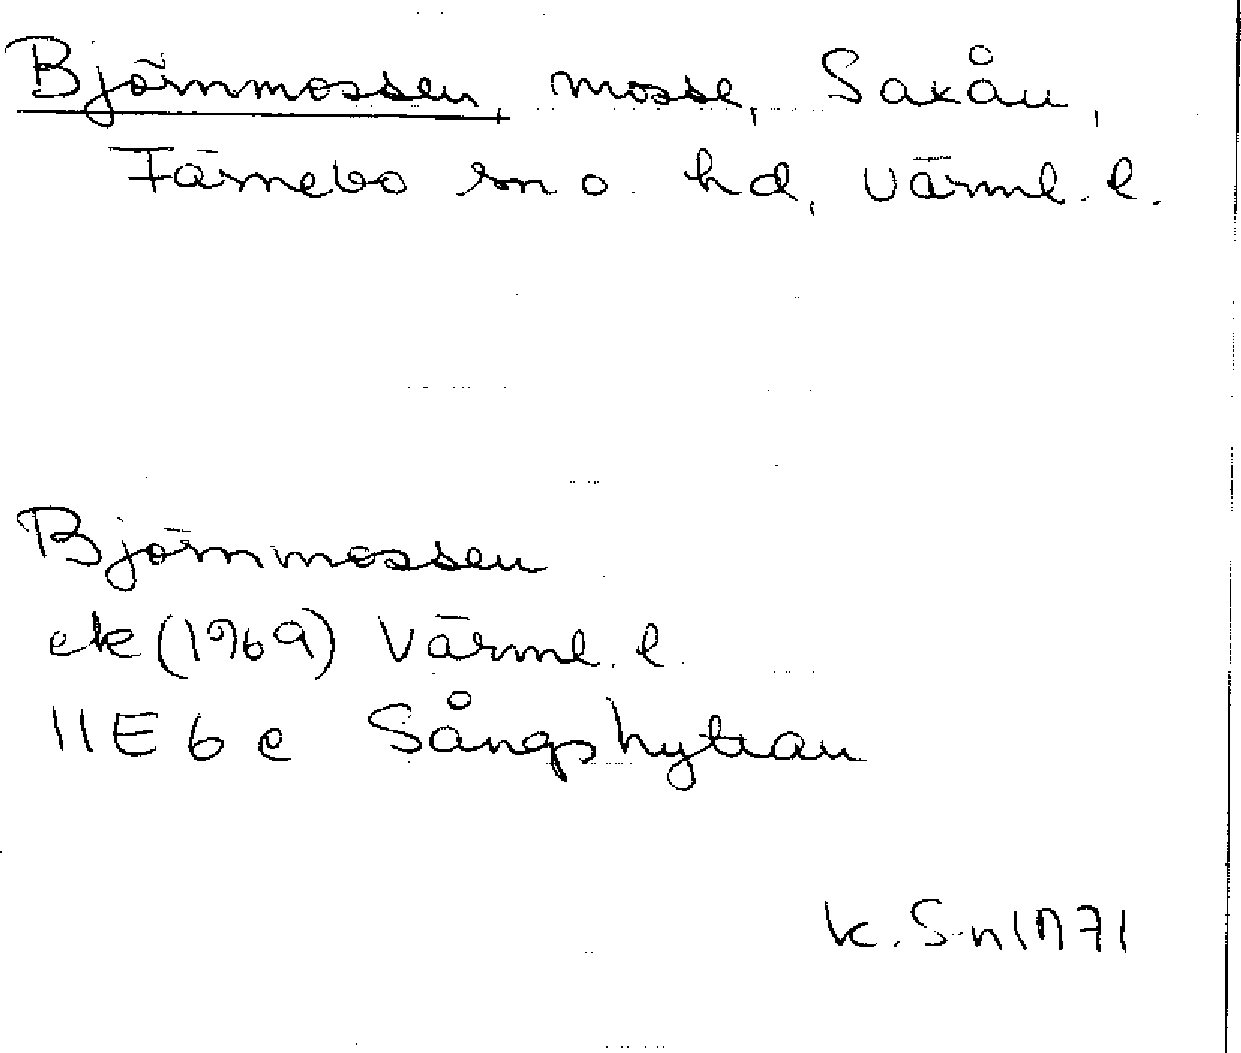 Björnmossen, mosse, Saxån,
Färnebo sn o. hd, Värml. l.
Björnmossen
ek (1969) Värml. l.
11E 6e Sångshyttan
K. S-n 1971